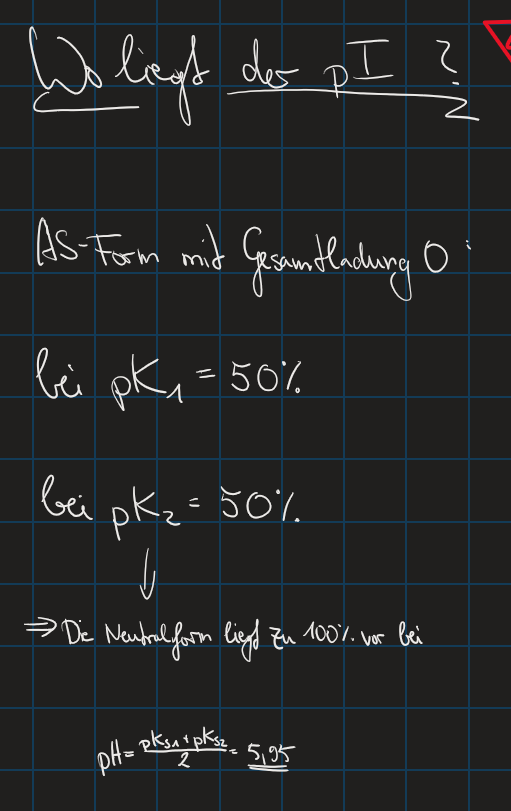 Wo liegt der pI ?
AS-Form mit Gesamtladung 0 :
bei pK₁ = 50%
bei pK₂ = 50%.
⇒ Die Neutralform liegt zu 100%. vor bei
pH = (pKs₁ + pKs₂)/2 = 5,95